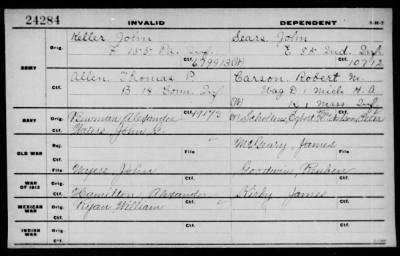 24284 INVALID DEPENDENT
Keller, John Sears, John
ARMY Orig. F 155 Pa. Inf E 88 Ind. Inf
Ctf. 679913 Ctf. 10712
Allen, Thomas P. Carson, Robert M.
Orig. B 18 Conn. Inf Wag D 1 Mich H. A
Ctf. K 1 Mass. Inf
NAVY Orig. Newman Alexander 19173
Ctf. Waters, John
OLD WAR Orig. McGeary, James
Ctf. Myers, John Goodwin, Reuben
WAR OF 1812 Orig. Hamilton, Alexander Kirby James
Ctf.
MEXICAN WAR Orig. Ryan William
Ctf.
INDIAN WAR Orig.
Ctf.